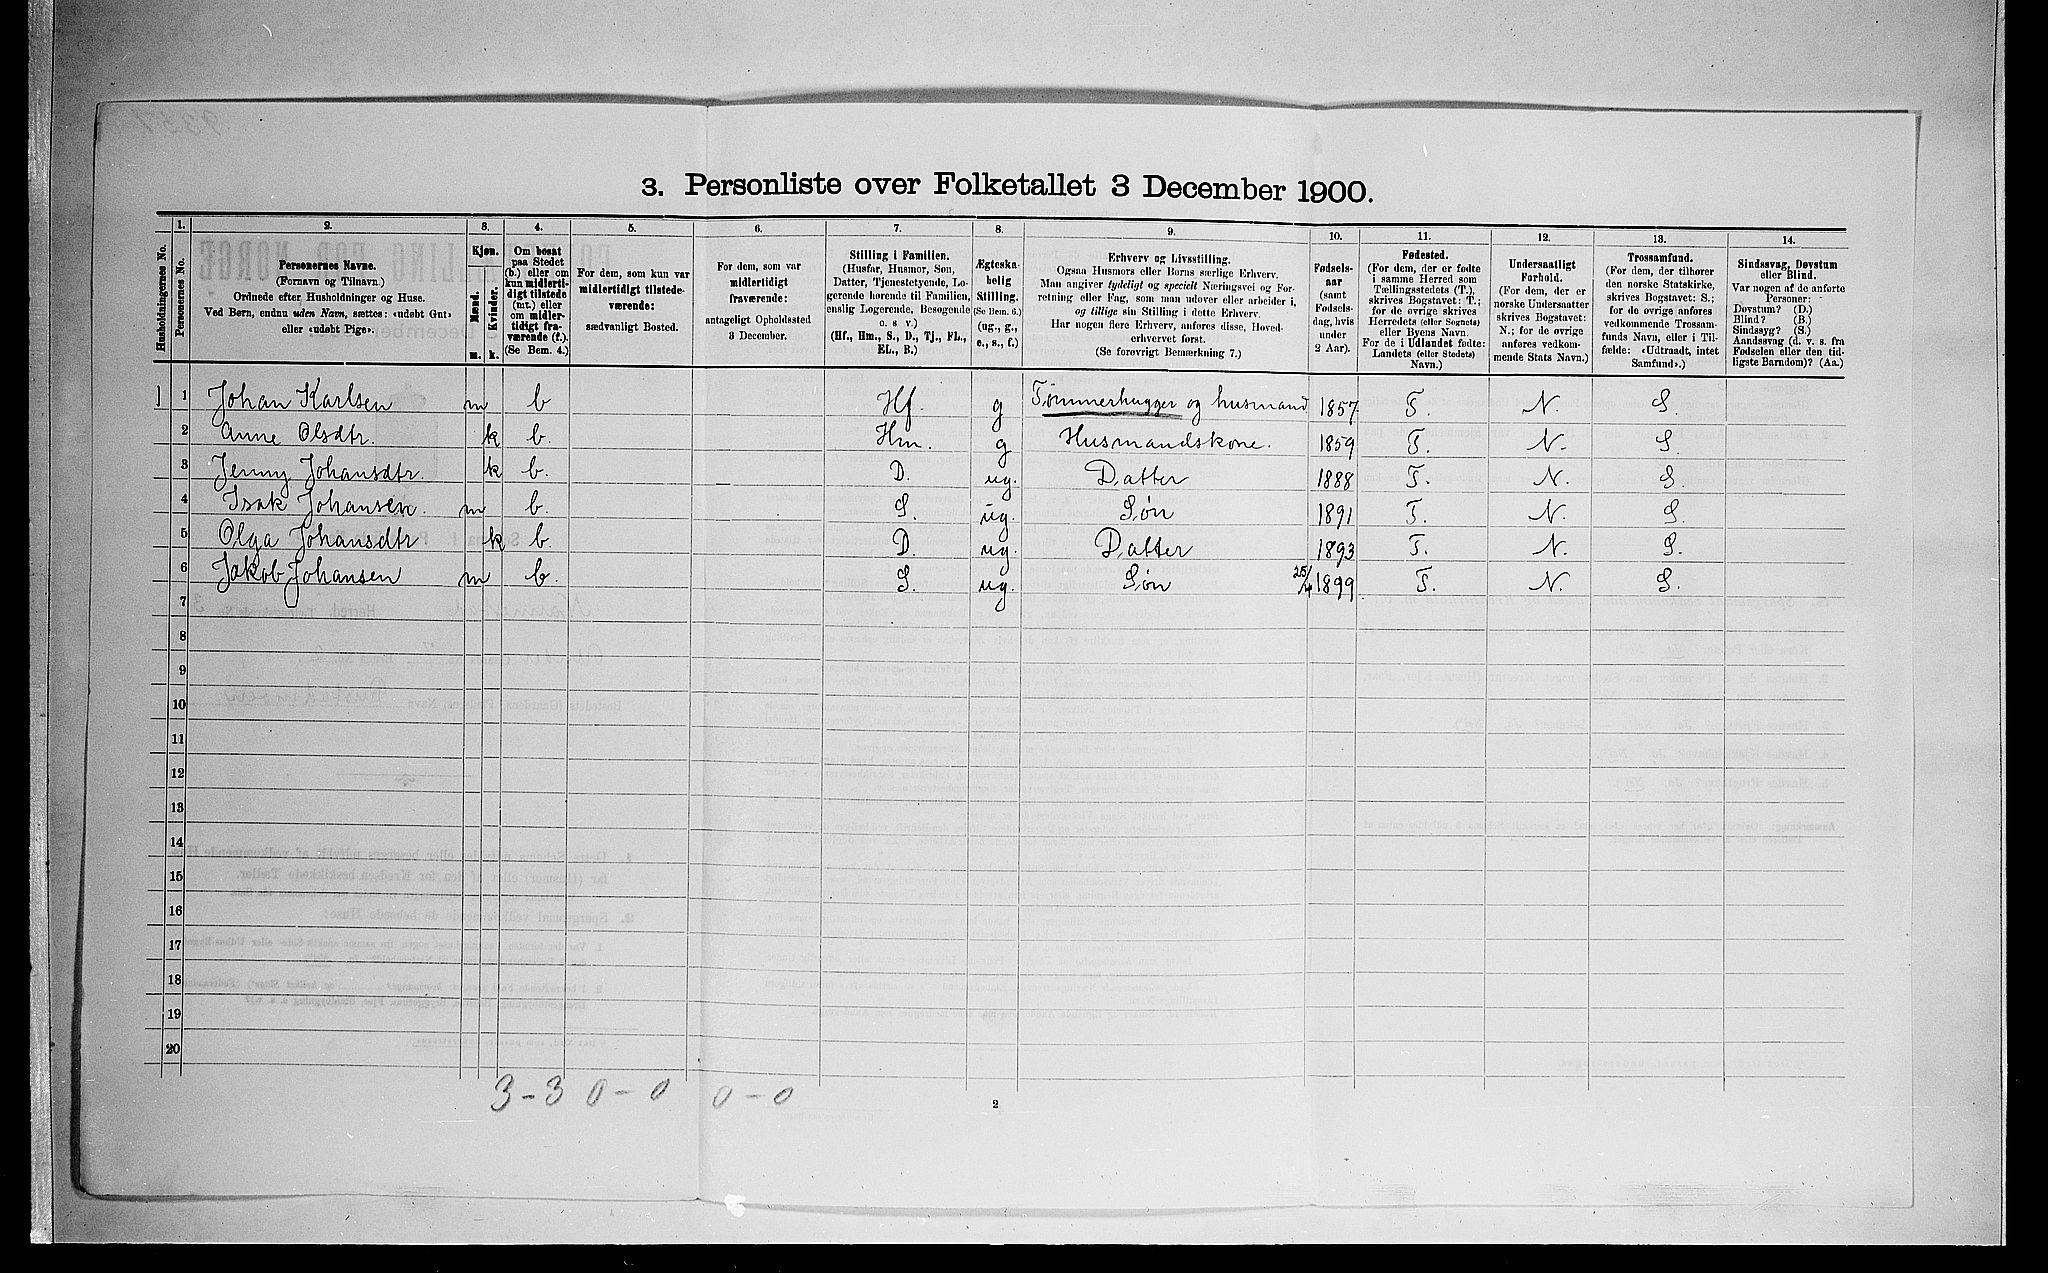 3. Personliste over Folketallet 3 December 1900.
Husholdningernes No.
1.
Personernes No.
2.
Personernes Navne.
(Fornavn og Tilnavn.)
Ordnede efter Husholdninger og Huse.
Ved Børn, endnu uden Navn, sættes: «udøbt Gut»
eller «udøbt Pige».
3.
Kjøn.
Mænd.
Kvinder.
m.
k.
4.
Om bosat
paa Stedet
(b.) eller om
kun midlerti-
digt tilstede
(mt.) eller
om midler-
tidigt fra-
værende (f.).
(Se Bem. 4.)
5.
For dem, som kun var
midlertidigt tilstede-
værende:
sædvanligt Bosted.
6.
For dem, som var
midlertidigt
fraværende:
antageligt Opholdssted
3 December.
7.
Stilling i Familien.
(Husfar, Husmor, Søn,
Datter, Tjenestetyende, Lo-
gerende hørende til Familien,
enslig Logerende, Besøgende
o. s v.)
(Hf., Hm., S., D., Tj., FL.,
EL., B.)
8.
Ægteska-
belig
Stilling.
(Se Bem. 6.)
(ug., g.,
e., s., f.)
9.
Erhverv og Livsstilling.
Ogsaa Husmors eller Børns særlige Erhverv.
Man angiver tydeligt og specielt Næringsvei og For-
retning eller Fag, som man udøver eller arbeider i,
og tillige sin Stilling i dette Erhverv.
Har nogen flere Erhverv, anføres disse, Hoved-
erhvervet først.
(Se forøvrigt Bemerkning 7.)
10.
Fødsels-
aar
(samt
Fødsels-
dag, hvis
under
2 Aar).
11.
Fødested.
(For dem, der er fødte
i samme Herred som
Tællingsstedets (T.),
skrives Bogstavet: T.;
for de øvrige skrives
Herredets (eller Sognets)
eller Byens Navn.
For de i Udlandet fødte:
Landets (eller Stedets)
Navn.)
12.
Undersaatligt
Forhold.
(For dem, der er
norske Undersaatter
skrives Bogstavet:
N.; for de øvrige
anføres vedkom-
mende Stats Navn.)
13.
Trossamfund.
(For dem, der tilhører
den norske Statskirke,
skrives Bogstavet: S.;
for de øvrige anføres
vedkommende Trossam-
funds Navn, eller i Til-
fælde: «Udtraadt, intet
Samfund».)
14.
Sindssvag, Døvstum
eller Blind.
Var nogen af de anførte
Personer:
Døvstum? (D.)
Blind? (B.)
Sindssyg? (S.)
Aandssvag (d. v. s. fra
Fødselen eller den tid-
ligste Barndom)? (Aa.)
1 1 Johan Karlsen m b Hf. g Tømmerhugger og husmand 1857 T. N. S.
2 Anne Olsdtr. k b. Hm. g Husmandskone. 1859 T. N. S.
3 Jenny Johansdtr. k b. D. ug. Datter 1888 T. N. S.
4 Isak Johansen. m b. S. ug. Søn 1891 T. N. S.
5 Olga Johansdtr k b. D. ug. Datter 1893 T. N. S.
6 Jakob Johansen m b. S. ug. Søn 1899 T. N. S.
7
8
9
10
11
12
13
14
15
16
17
18
19
20
3 - 3 0 - 0 0 - 0
2